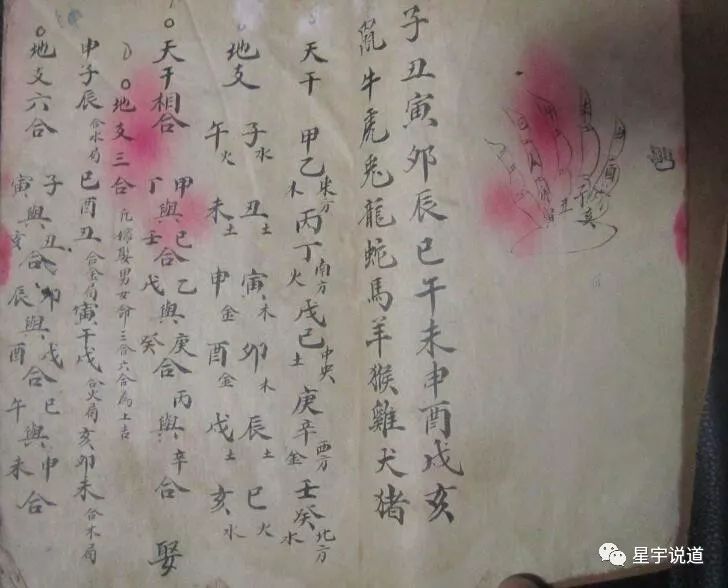 酉
子亥
丑
寅
子丑寅卯辰巳午未申酉戌亥
鼠牛虎兎龍蛇馬羊猴雞犬猪
天干 甲乙木東方 丙丁火南方 戊己土中央 庚辛金西方 壬癸水北方
地支 子水 丑土 寅木 卯木 辰土 巳火
午火 未土 申金 酉金 戌土 亥水
天干相合 甲與己合 乙與庚合 丙與辛合
丁與壬 戊與癸 娶
地支三合 凡嫁娶男女命三合六合為上吉
申子辰合水局 巳酉丑合金局 寅午戌合火局 亥卯未合木局
地支六合 子與丑合 卯與戌合 巳與申合
寅與亥 辰與酉 午與未合
星宇说道